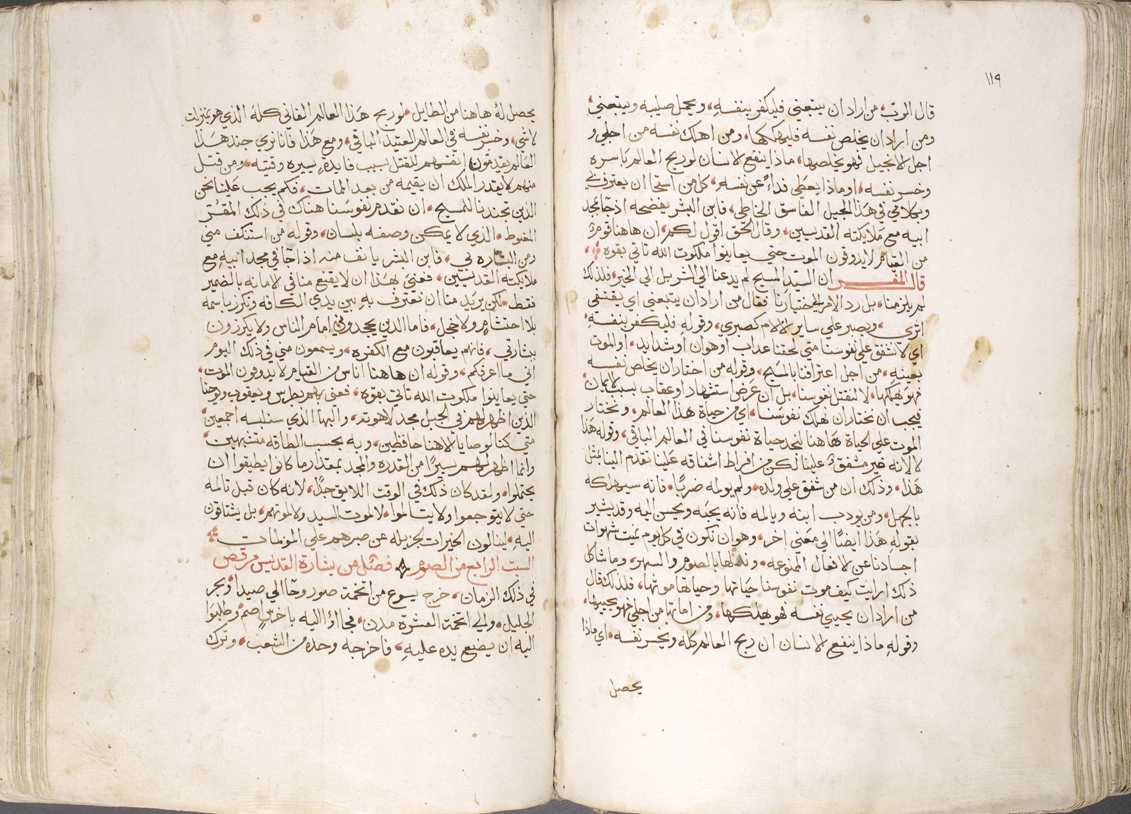 ١١٩
قال الرب، من اراد ان يتبعني فليكفر بنفسه، ويحمل صليبه ويتبعني،
ومن اراد ان يخلص نفسه فليهلكها، ومن اهلك نفسه من اجلي و
اجل الانجيل فهو يخلصها، ماذا ينفع الانسان لو ربح العالم باسره
وخسر نفسه، او ماذا يعطي فداءً عن نفسه، كل من استحا ان يعترف بي
وبكلامي في هذا الجيل الفاسق الخاطي، فابن البشر يفضحه اذا جا بمجد
ابيه مع ملايكته القديسين، وقال الحق اقول لكم، ان هاهنا قوم
من القيام لا يدوقون الموت حتي يعاينوا ملكوت الله تاتي بقوه
قال المفسر ان السيد المسيح لم يدعنا الي الشر بل الي الخير، فلذلك
لم يلزمنا، بل رد الامر لاختيارنا فقال من اراد ان يتبعني اي يقتفي
اثري، ويصبر علي ساير الالام كصبري، وقوله فليكفر بنفسه،
اي لا نشفق علي نفوسنا متي لحقنا عداب او هوان او شدايد، او الموت
بعينه، من اجل اعترافنا بالمسيح، وقوله من اختار ان يخلص نفسه
فهو يهلكها، لا لنقتل نفوسنا، بل ان عرض استشهاد او عقاب بسبب الايمان،
فيجب ان نختار ان نهلك نفوسنا، اي من حياة هذا العالم، ونختار
الموت علي الحياة هاهنا لنجد حياة نفوسنا في العالم الباقي، وقوله هذا
لا لانه غير مشفق علينا لكن من افراط اشفاقه علينا تقدم الينا بمثل
هذا، وذلك ان من شفق علي ولده، ولم يولمه ضربًا، فانه سيهلكه
بالجهل، ومن يودب ابنه ويالمه فانه يحبه ويحسن اليه وقد يشير
بقوله هذا ايضًا الي معني اخر، وهو ان نكون في كل يوم نميت شهوات
اجسادنا عن الافعال الممنوعه، ونذلها بالصوم والسهر، وما شاكل
ذلك ارايت كيف موت نفوسنا حياتها وحياتها موتها، فلذلك قال
من اراد ان يحيي نفسه فهو يهلكها، ومن اماتها من اجلي فهو يحييها،
وقوله ماذا ينفع الانسان ان ربح العالم كله ويخسر نفسه، اي ماذا
يحصل
يحصل له هاهنا من الطايل، لو ربح هذا العالم الفاني كله الذي هو بمنزلت
لاشي، وخسر نفسه في العالم العتيد الباقي، ومع هذا فانا نري جند هذا
العالم يقدمون انفسهم للقتل بسبب فايدة يسيره وقتيه، ومن قتل
منهم لا يقدر الملك ان يقيمه من بعد الممات، فكم يجب علينا نحن
الذين تجندنا للمسيح، ان نقدم نفوسنا هناك في ذلك المقر
المغبوط، الذي لا يمكن وصفه بلسان، وقوله من استنكف مني
ومن البشاره لي، فابن البشر يانف منه اذا جا في مجد ابيه مع
ملايكته القديسين، فمعني هذا ان لا يقنع منا في الامانه بالضمير
فقط، لكن يريد منا ان نعترف به بين يدي الكافه ونكرز باسمه
بلا احتشام ولا خجل، فاما الذين يجحدوني امام الناس ولا يكرزون
ببشارتي، فانهم يعاقبون مع الكفره، ويسمعون مني في ذلك اليوم
اني ما اعرفكم، وقوله ان هاهنا اناس من القيام لا يدوقون الموت،
حتي يعاينوا ملكوت الله تاتي بقوه، فعني بهم بطرس ويعقوب ويوحنا
الذين اظهر لهم في الجبل مجد لاهوته، والبها الذي سنلبسه اجمعين
متي كنا لوصايا الاهنا حافظين، وبه بحسب الطاقه متشبهين،
وانما اظهر لهم يسيرًا من القدرة والمجد بمقدار ما كانوا يطيقوا ان
يحتملوا، ولقد كان ذلك في الوقت اللايق جدًا، لانه كان قبل تالمه
حتي لا يتوجعوا ولا يتالموا، لا لموت السيد ولا لموتهم، بل يشتاقون
اليه، لينالون الخيرات الجزيله عن صبرهم علي المولمات
السبت الرابع من الصوم فصل من بشارة القديس مرقص
في ذلك الزمان، خرج يسوع من تخوم صور وجا الي صيدا، وبحر
الجليل، والي تخوم العشرة مدن، فجااوا اليه باخرس اصم، وطلبوا
اليه ان يضع يده عليه، فاخرجه وحده من الشعب، وترك